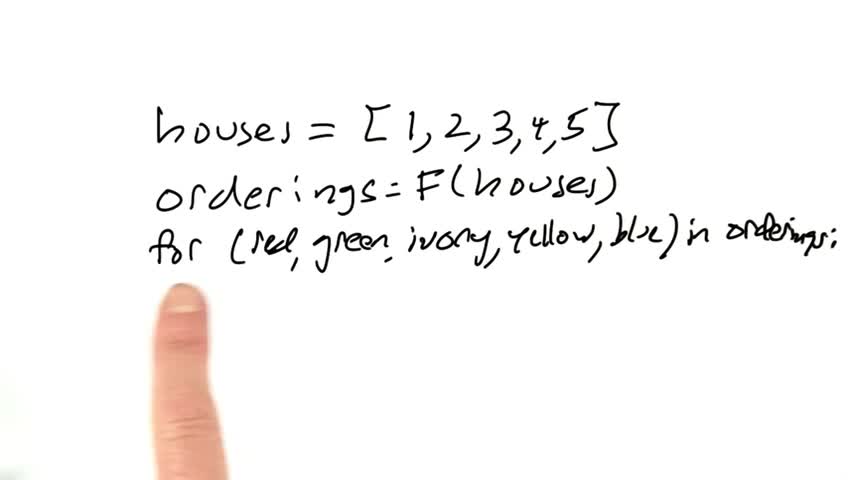 houses = [1, 2, 3, 4, 5]
orderings = F(houses)
for (red, green, ivory, yellow, blue) in orderings: